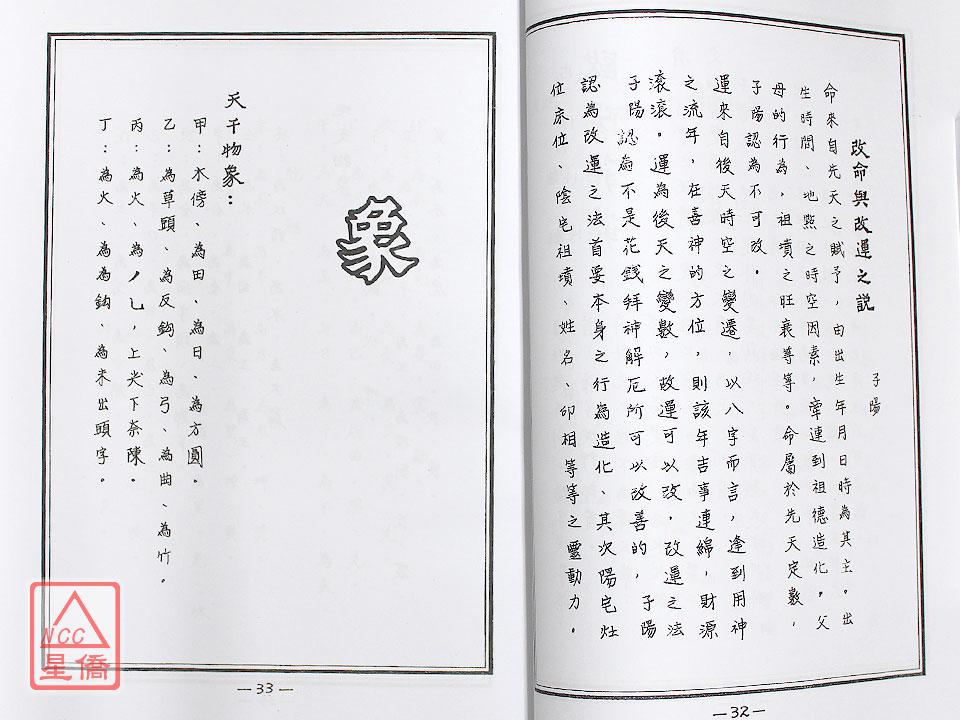 改命與改運之說
子陽
命來自先天之賦予，由出生年月日時為其主。出
生時間、地點之時空因素，牽連到祖德造化。父
母的行為，祖墳之旺衰等等。命屬於先天定數，
子陽認為不可改。
運來自後天時空之變遷，以八字而言，逢到用神
之流年，在喜神的方位，則該年吉事連綿，財源
滾滾。運為後天之變數，故運可以改，改運之法
子陽認為不是花錢拜神解厄所可以改善的，子陽
認為改運之法首要本身之行為造化、其次陽宅灶
位床位、陰宅祖墳、姓名、印相等等之靈動力。
—32—
象
天干物象：
甲：木傍、為田、為日、為方圓。
乙：為草頭、為反鈎、為弓、為曲、為竹。
丙：為火、為ノ乚，上尖下奈陳。
丁：為火、為為鈎、為未出頭字。
—33—
NCC
星僑